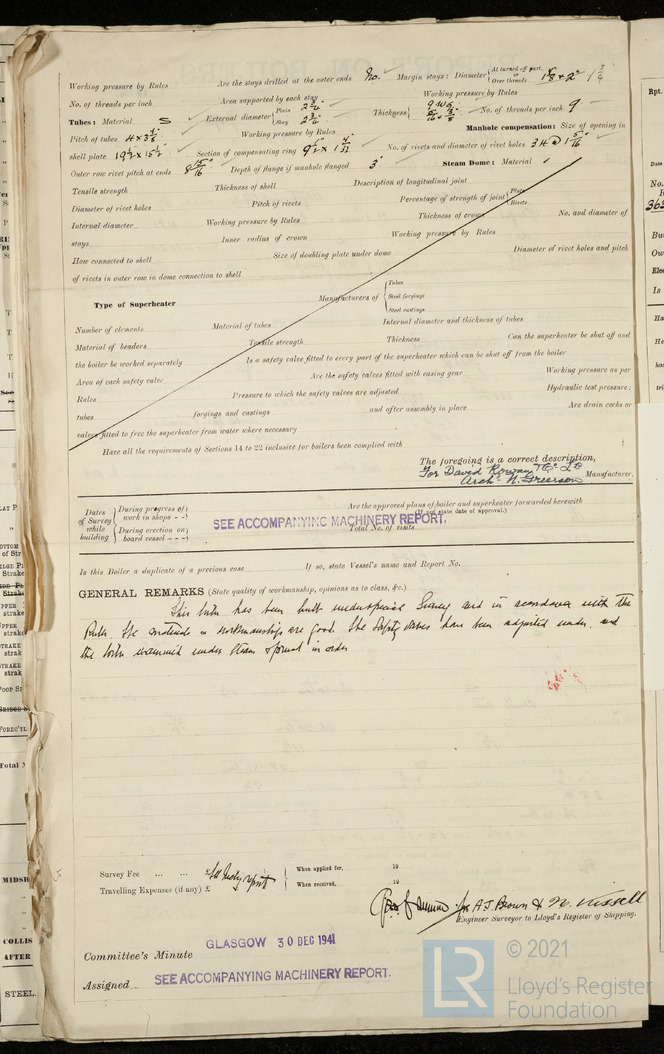 Working pressure by Rules Are the stays drilled at the outer ends No. Margin stays: Diameter { At turned off part, or Over threads 1 7/8 & 2" 1 3/4
No. of threads per inch Area supported by each stay Working pressure by Rules
Tubes: Material S External diameter { Plain 2 3/4" Stay 2 3/4" Thickness { 9 WG 5/16 & 3/8 No. of threads per inch 9
Pitch of tubes 4 x 3 7/8 Working pressure by Rules Manhole compensation: Size of opening in
shell plate 19 1/2 x 15 1/2 Section of compensating ring No. of rivets and diameter of rivet holes 34 @ 1 5/16
Outer row rivet pitch at ends 8 15/16 Depth of flange if manhole flanged 3" Steam Dome: Material
Tensile strength Thickness of shell Description of longitudinal joint
Diameter of rivet holes Pitch of rivets Percentage of strength of joint { Plate Rivets
Internal diameter Working pressure by Rules Thickness of crown No. and diameter of
stays Inner radius of crown Working pressure by Rules
How connected to shell Size of doubling plate under dome Diameter of rivet holes and pitch
of rivets in outer row in dome connection to shell
Type of Superheater Manufacturers of { Tubes Steel forgings Steel castings
Number of elements Material of tubes Internal diameter and thickness of tubes
Material of headers Tensile strength Thickness Can the superheater be shut off and
the boiler be worked separately Is a safety valve fitted to every part of the superheater which can be shut off from the boiler
Area of each safety valve Are the safety valves fitted with easing gear Working pressure as per
Rules Pressure to which the safety valves are adjusted Hydraulic test pressure:
tubes forgings and castings and after assembly in place Are drain cocks or
valves fitted to free the superheater from water where necessary
Have all the requirements of Sections 14 to 22 inclusive for boilers been complied with
The foregoing is a correct description,
For David Rowan & Co Ld
Arch. N. Grierson Manufacturer.
Dates of Survey while building { During progress of work in shops - - } { During erection on board vessel - - - }
Are the approved plans of boiler and superheater forwarded herewith
(If not state date of approval.)
SEE ACCOMPANYING MACHINERY REPORT.
Total No. of visits
Is this Boiler a duplicate of a previous case If so, state Vessel's name and Report No.
GENERAL REMARKS (State quality of workmanship, opinions as to class, &c.)
This boiler has been built under special Survey and in accordance with the
Rules. The materials & workmanship are good. The Safety valves have been adjusted under, and
the boiler examined under steam & found in order
Survey Fee ... ... £ See Mchy report { When applied for, 19
Travelling Expenses (if any) £ { When received, 19
for A.J. Brown & W. Kissell
Engineer Surveyor to Lloyd's Register of Shipping.
GLASGOW 30 DEC 1941
Committee's Minute
SEE ACCOMPANYING MACHINERY REPORT.
Assigned
LR
© 2021
Lloyd's Register
Foundation
Rpt.
Date
No.
363
MIDSH
COLLIS
AFTER
STEEL.
POOP
FOREC'TL
Total